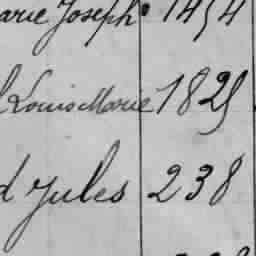 arie Joseph 1454
Louis Marie 1829
d Jules 238